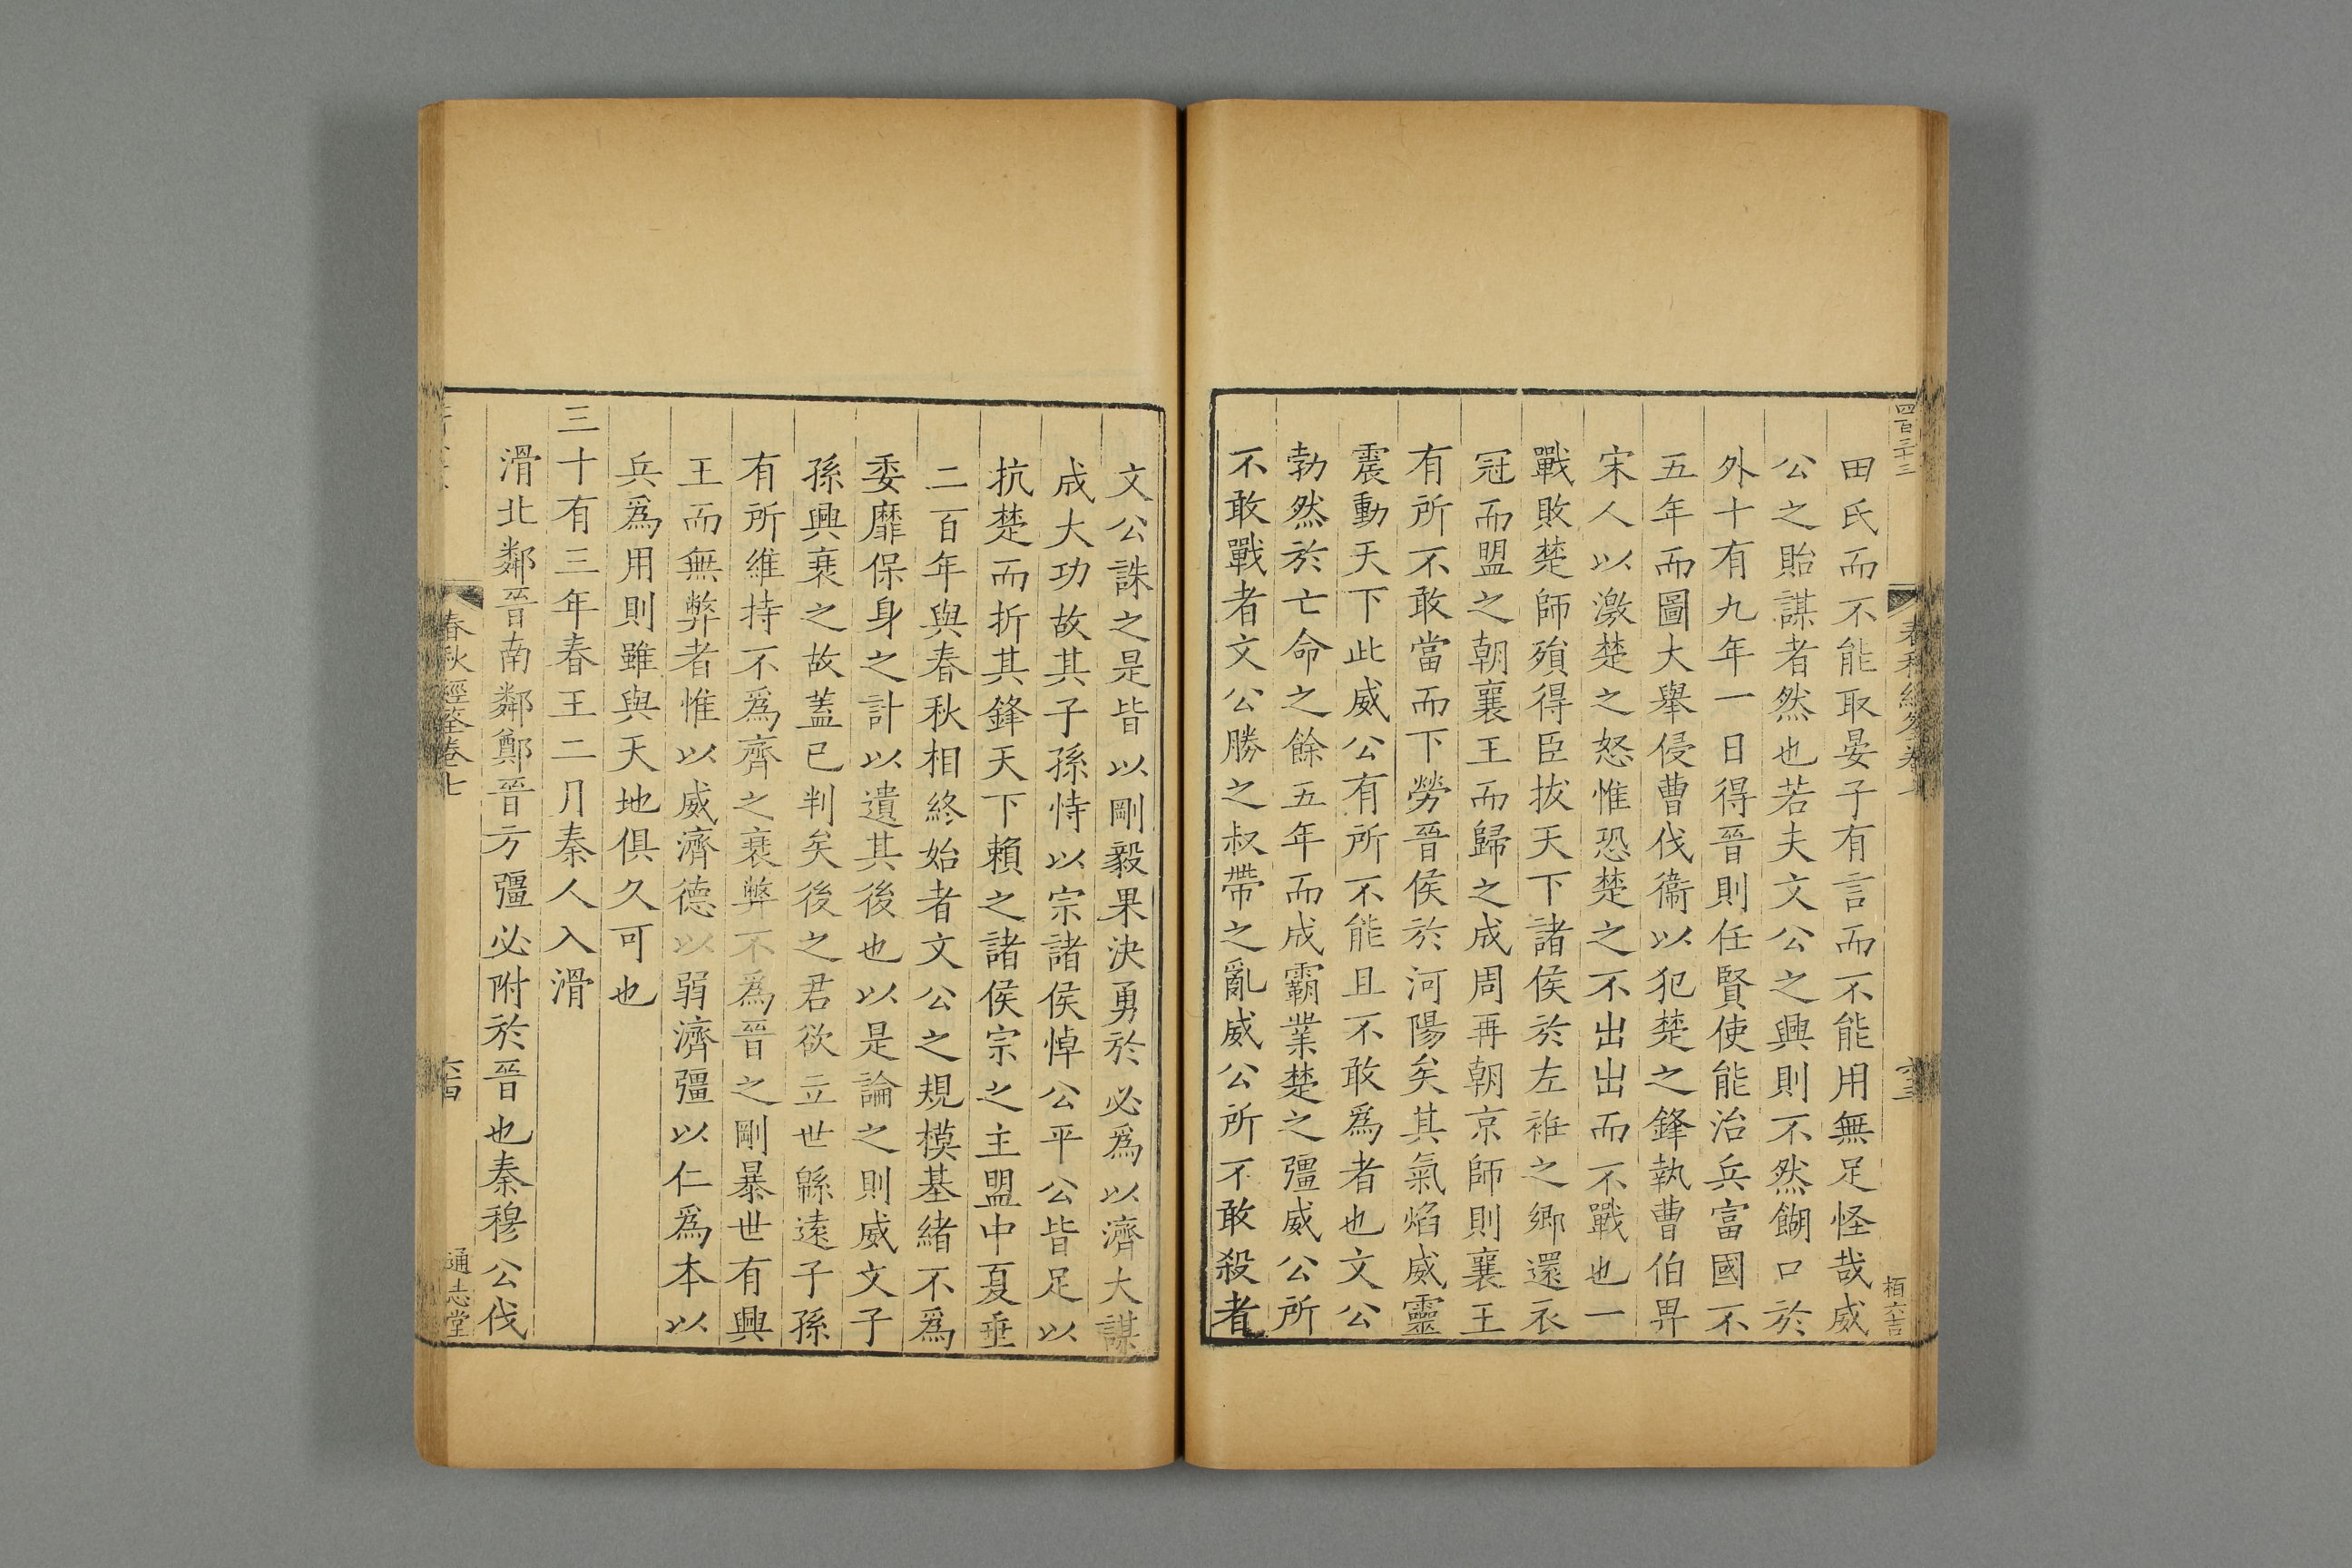 四百三十三
田氏而不能取晏子有言而不能用無足怪哉威
公之貽謀者然也若夫文公之興則不然餬口於
外十有九年一日得晉則任賢使能治兵富國不
五年而圖大舉侵曹伐衞以犯楚之鋒執曹伯畀
宋人以激楚之怒惟恐楚之不出出而不戰也一
戰敗楚師殞得臣拔天下諸侯於左袵之鄉還衣
冠而盟之朝襄王而歸之成周再朝京師則襄王
有所不敢當而下勞晉侯於河陽矣其氣焰威靈
震動天下此威公有所不能且不敢爲者也文公
勃然於亡命之餘五年而成霸業楚之彊威公所
不敢戰者文公勝之叔帶之亂威公所不敢殺者
文公誅之是皆以剛毅果決勇於必爲以濟大謀
成大功故其子孫恃以宗諸侯悼公平公皆足以
抗楚而折其鋒天下賴之諸侯宗之主盟中夏垂
二百年與春秋相終始者文公之規模基緒不爲
委靡保身之計以遺其後也以是論之則威文子
孫興衰之故蓋已判矣後之君欲立世緜遠子孫
有所維持不爲齊之衰弊不爲晉之剛暴世有興
王而無弊者惟以威濟德以弱濟彊以仁爲本以
兵爲用則雖與天地俱久可也
三十有三年春王二月秦人入滑
滑北鄰晉南鄰鄭晉方彊必附於晉也秦穆公伐
春秋經筌卷七
六四
通志堂